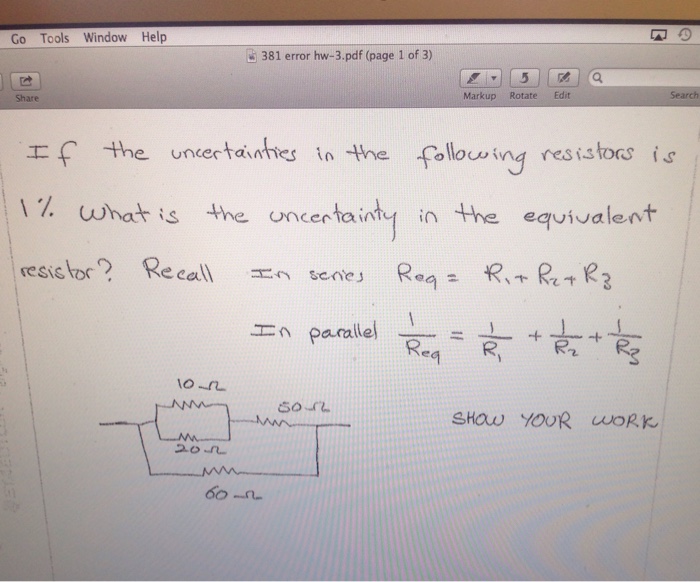 Go Tools Window Help
381 error hw-3.pdf (page 1 of 3)
Share
5
Markup Rotate Edit
Search
If the uncertainties in the following resistors is
1% what is the uncertainty in the equivalent
resistor? Recall In series Req = R1 + R2 + R3
In parallel 1/Req = 1/R1 + 1/R2 + 1/R3
10 Ω
50 Ω
20 Ω
60 Ω
SHOW YOUR WORK